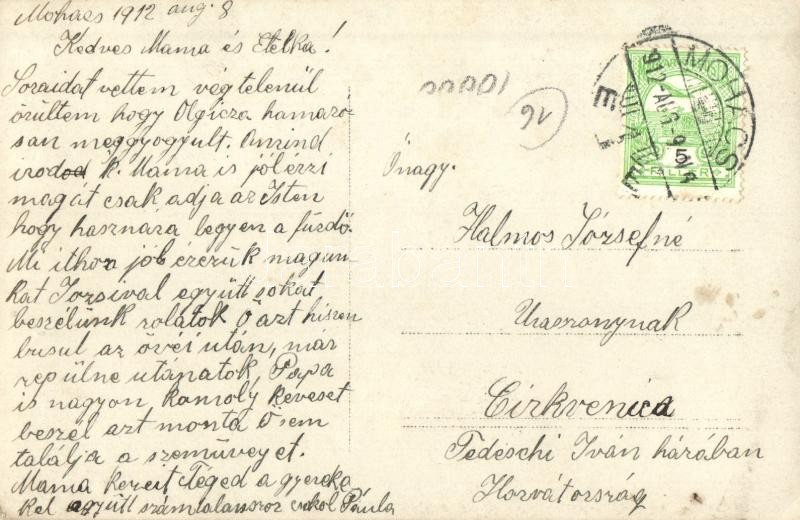 Mohacs 1912 aug. 8
Kedves Mama és Etelka!
Soraidat vettem végtelenül
örültem hogy Olgicza hamaro-
san meggyogyult. Amind
irod k. Mama is jól érzi
magát csak adja az Isten
hogy hasznára legyen a fürdő.
Mi ithon jól érezük magun-
kat Jozsival együtt sokat
beszélünk rolatok Ő azt hiszem
busul az övéi után, már
repülne utánatok, Papa
is nagyon komoly keveset
beszél azt monta Ő sem
találja a szemüveget.
Mama kezeit Téged a gyereke
kel együtt számtalanszor csókol Paula
10000
16
MOHÁCS
912 AUG
5
FILLÉR
Önagy.
Halmos Józsefné
Uraszonynak
Cirkvenica
Tedeschi Iván házában
Horvátország